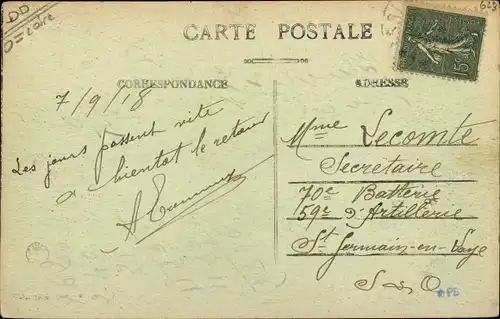 DD
CARTE POSTALE
CORRESPONDANCE
ADRESSE
7/9/18
Les jours passent vite
a bientot le retour
Mme Lecomte
Secretaire
70e Batterie
59e d'Artillerie
St Germain-en-Laye
S & O